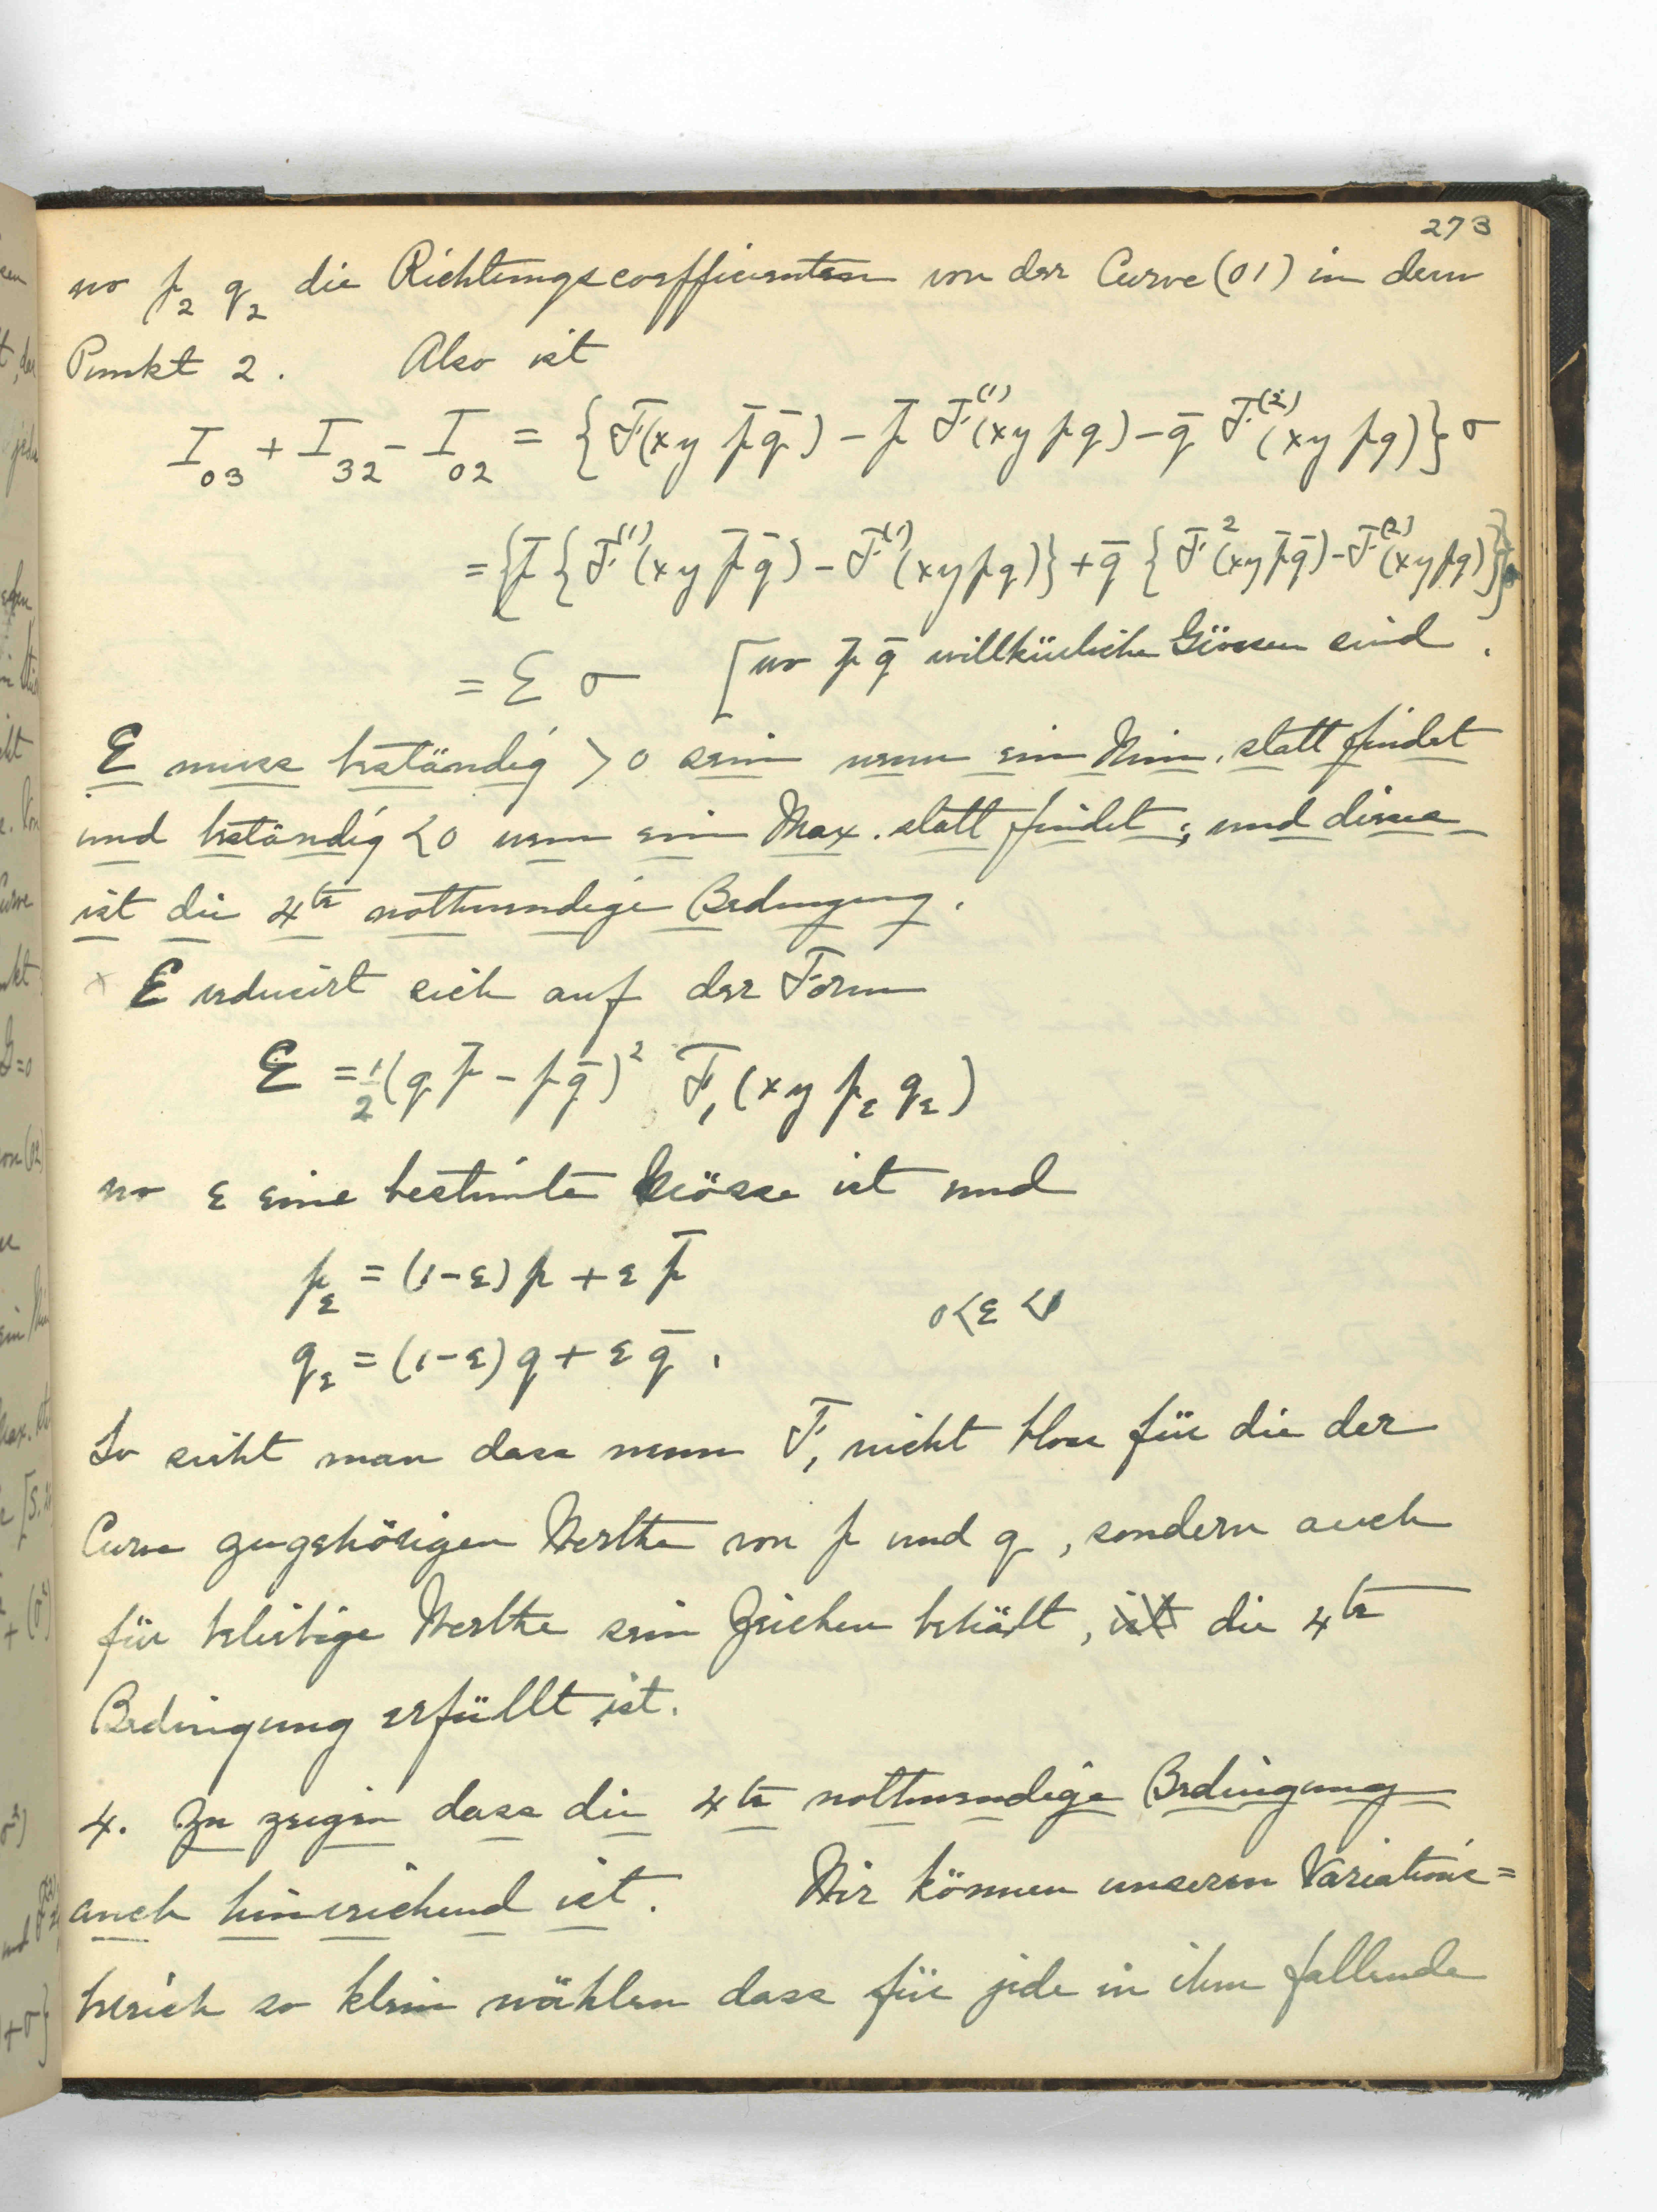 273
wo p₂ q₂ die Richtungscoefficienten von der Curve (01) in dem
Punkt 2. Also ist
I₀₃ + I₃₂ - I₀₂ = {F(xy p̄q̄) - p̄ F⁽¹⁾(xy pq) - q̄ F⁽²⁾(xy pq)} σ
= {p̄ {F⁽¹⁾(xy p̄q̄) - F⁽¹⁾(xy pq)} + q̄ {F²(xy p̄q̄) - F⁽²⁾(xy pq)}}
= Ɛ σ [wo p̄ q̄ willkürliche Grössen sind.
Ɛ muss beständig > 0 sein wenn ein Min. statt findet
und beständig < 0 wenn ein Max. statt findet; und dieses
ist die 4te nothwendige Bedingung.
x Ɛ reducirt sich auf der Form
Ɛ = ½ (q p̄ - p q̄)² F₁ (xy p_ε q_ε)
wo ε eine bestimte Grösse ist und
p_ε = (1-ε) p + ε p̄
0 < ε < 1
q_ε = (1-ε) q + ε q̄.
So sieht man dass wenn F₁ nicht bloss für die der
Curve zugehörigen Werthe von p und q, sondern auch
für beliebige Werthe sein Zeichen behält, ist die 4te
Bedingung erfüllt ist.
4. Zu zeigen dass die 4te nothwendige Bedingung
auch hinreichend ist. Wir können unseren Variations=
bereich so klein wählen dass für jede in ihm fallende